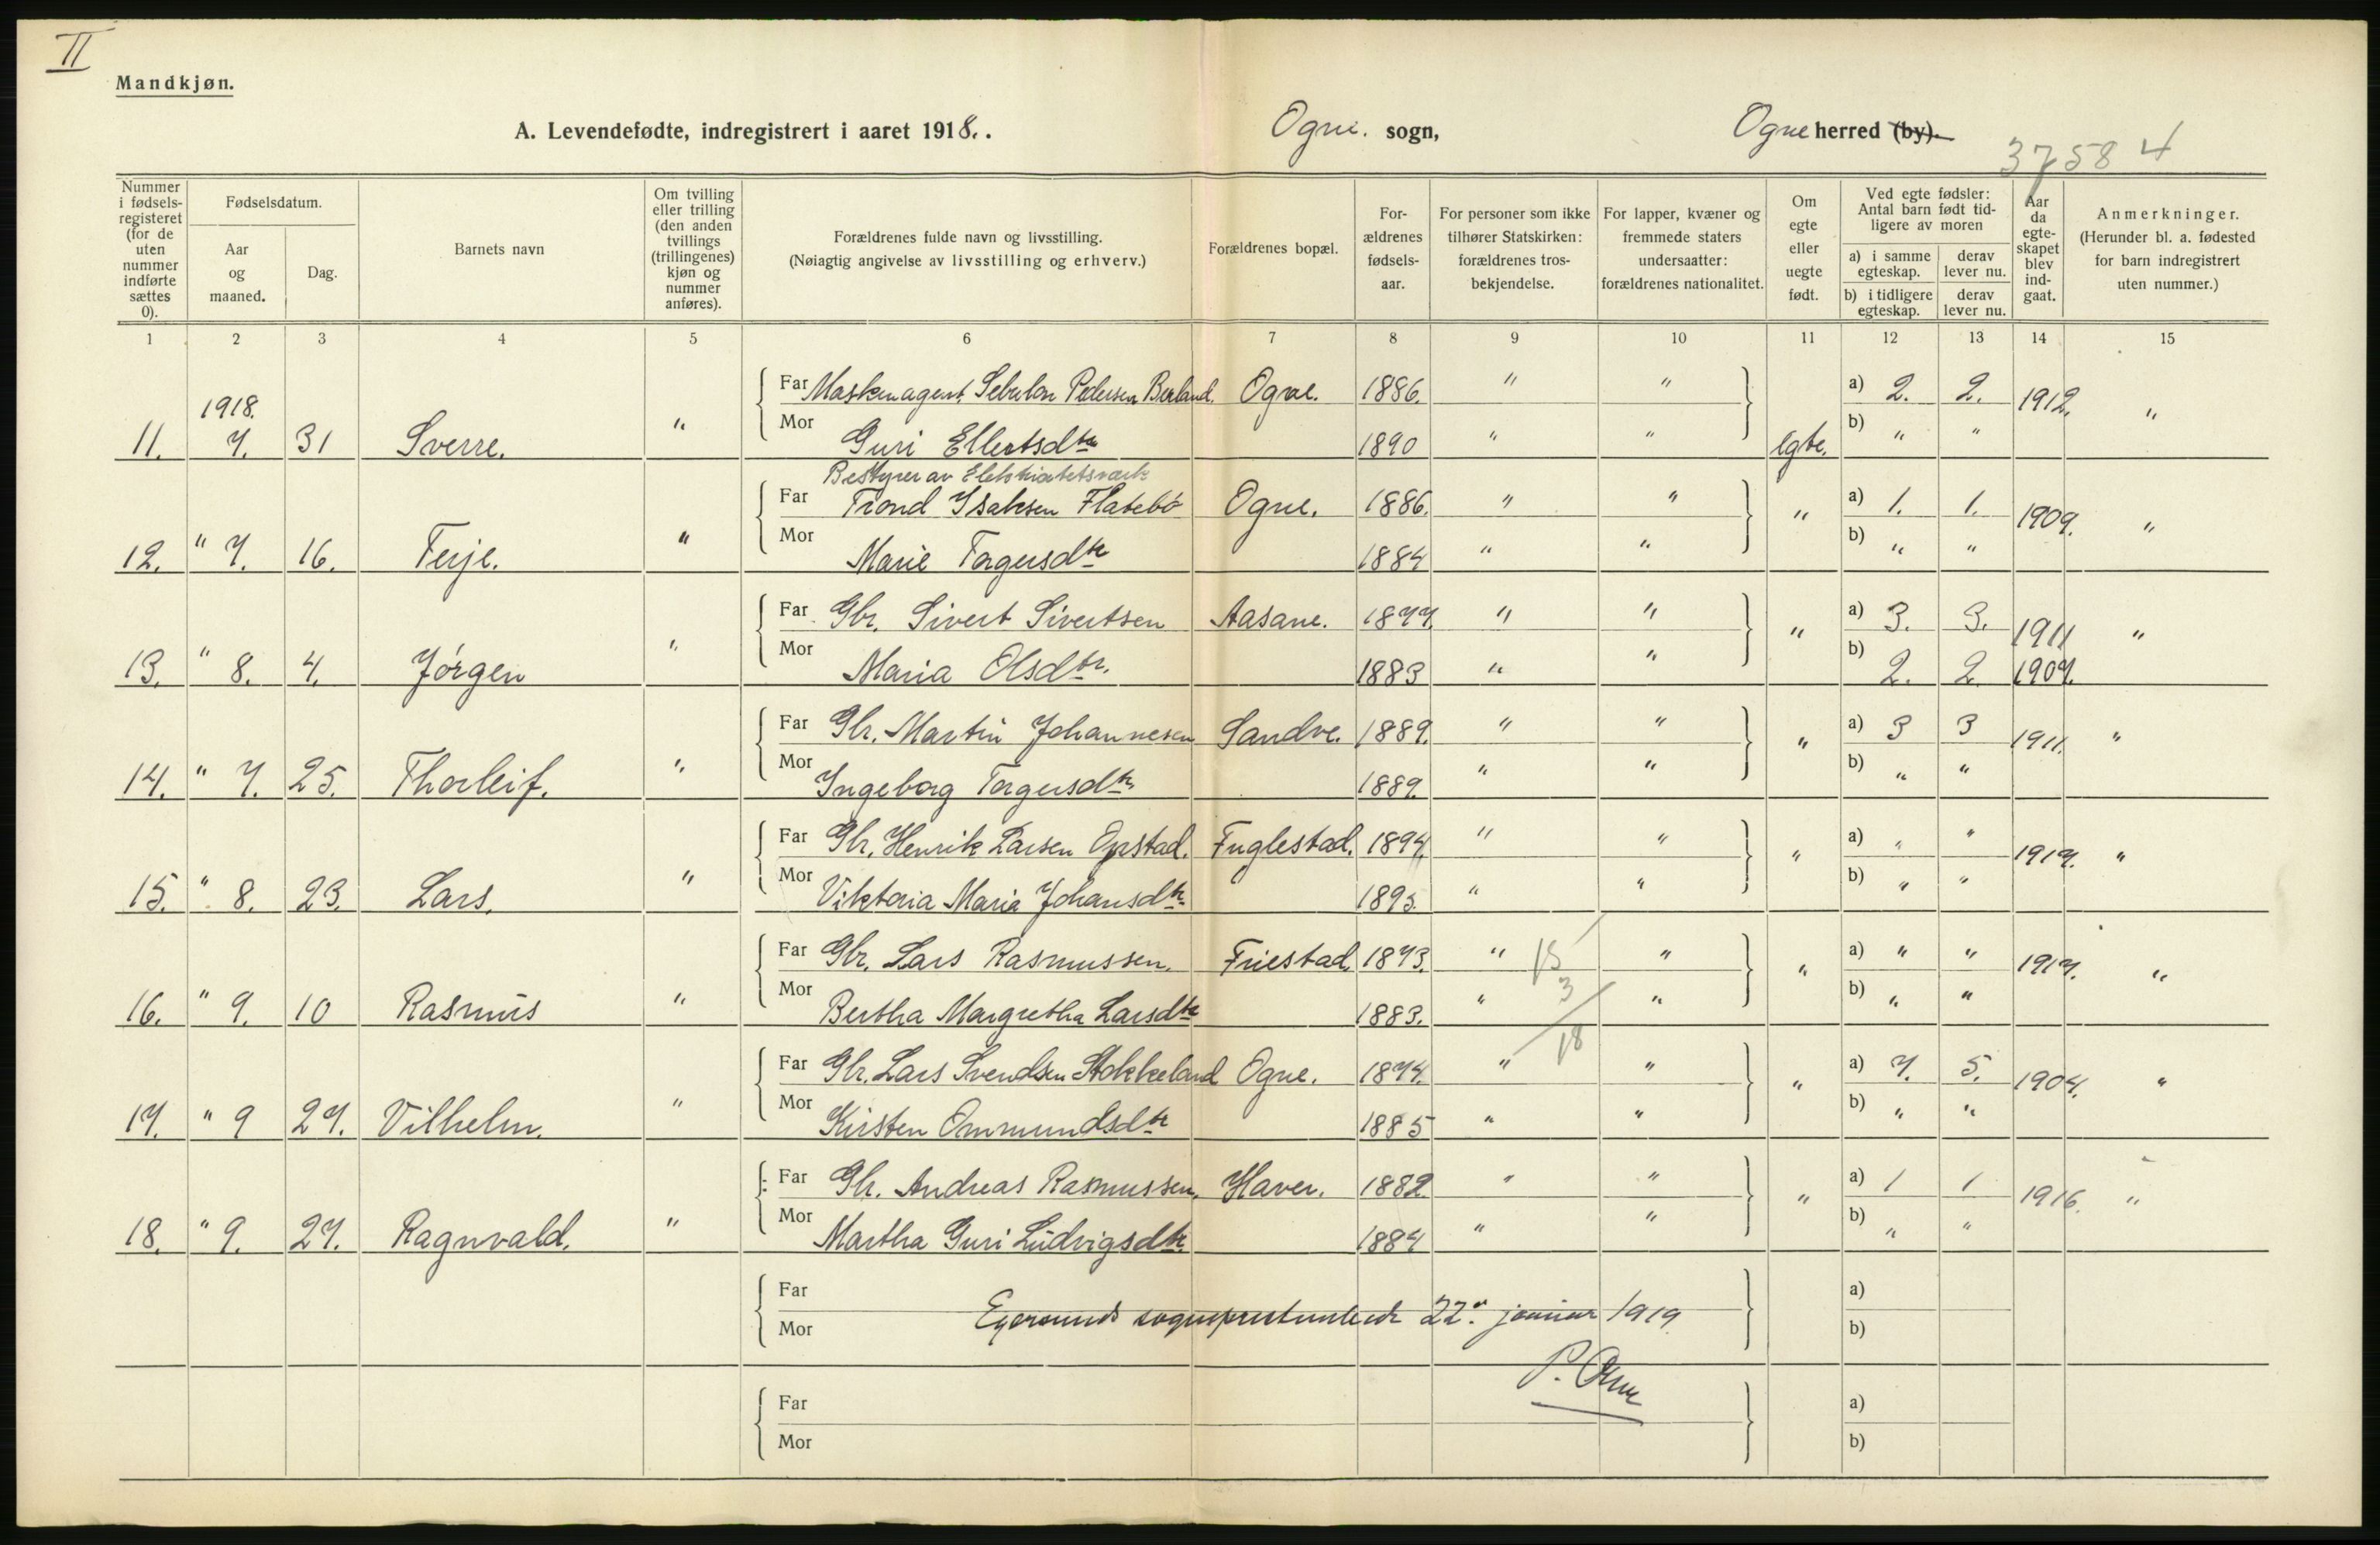 II
Mandkjøn.
A. Levendefødte, indregistrert i aaret 1918. . Ogne. sogn, Ogne herred (by).
37584
Nummer i fødsels-registeret (for de uten nummer indførte sættes 0). | Fødselsdatum. Aar og maaned. | Dag. | Barnets navn | Om tvilling eller trilling (den anden tvillings (trillingenes) kjøn og nummer anføres). | Forældrenes fulde navn og livsstilling. (Nøiagtig angivelse av livsstilling og erhverv.) | Forældrenes bopæl. | For-ældrenes fødsels-aar. | For personer som ikke tilhører Statskirken: forældrenes tros-bekjendelse. | For lapper, kvæner og fremmede staters undersaatter: forældrenes nationalitet. | Om egte eller uegte født. | Ved egte fødsler: Antal barn født tid-ligere av moren a) i samme egteskap. b) i tidligere egteskap. | derav lever nu. derav lever nu. | Aar da egte-skapet blev ind-gaat. | Anmerkninger. (Herunder bl. a. fødested for barn indregistrert uten nummer.)
1 2 3 4 5 6 7 8 9 10 11 12 13 14 15
Far Maskinagent Sebulon Pedersen Berland. Ogne. 1886. " " a) 2. 2. 1912. "
1918.
11. 7. 31 Sverre. " Mor Guri Ellertsdtr 1890 " " egte. b) " "
Bestyrer av Elektricitetsverk
Far Trond Isaksen Flatebø Ogne. 1886. " " " a) 1. 1. 1909. "
12. " 7. 16. Terje. " Mor Marie Torgersdtr 1884 " " b) " "
Far Gbr. Sivert Sivertsen Aasane. 1877. " " " a) 3. 3. 1911 "
13. " 8. 4. Jørgen " Mor Maria Olsdtr. 1883 " " b) 2. 2 1907.
Far Gbr. Martin Johannesen Sandve. 1889. " " " a) 3 3 1911. "
14. " 7. 25. Thorleif. " Mor Ingeborg Torgersdtr. 1889. " " b) " "
Far Gbr. Henrik Larsen Opstad. Fuglestad. 1894. " " " a) " " 1917. "
15. " 8. 23. Lars. " Mor Viktoria Maria Johansdtr. 1895. " " b) " "
Far Gbr. Lars Rasmussen. Friestad. 1873. " 15 " " a) " " 1917. "
3
16. " 9. 10 Rasmus " Mor Bertha Margretha Larsdtr 1883. " " b) " "
18
Far Gbr. Lars Svendsen Stokkeland Ogne. 1874. " " " a) 7. 5. 1904. "
17. " 9 27. Vilhelm. " Mor Kirsten Ommundsdtr 1885 " " b) " "
Far Gbr. Andreas Rasmussen. Haver. 1882 " " " a) 1 1 1916. "
18. " 9. 27. Ragnvald. " Mor Martha Guri Ludvigsdtr. 1884 " " b) " "
Far a)
Egersunds sogneprestembede 22. januar 1919
Mor b)
P.
Far a)
Mor b)